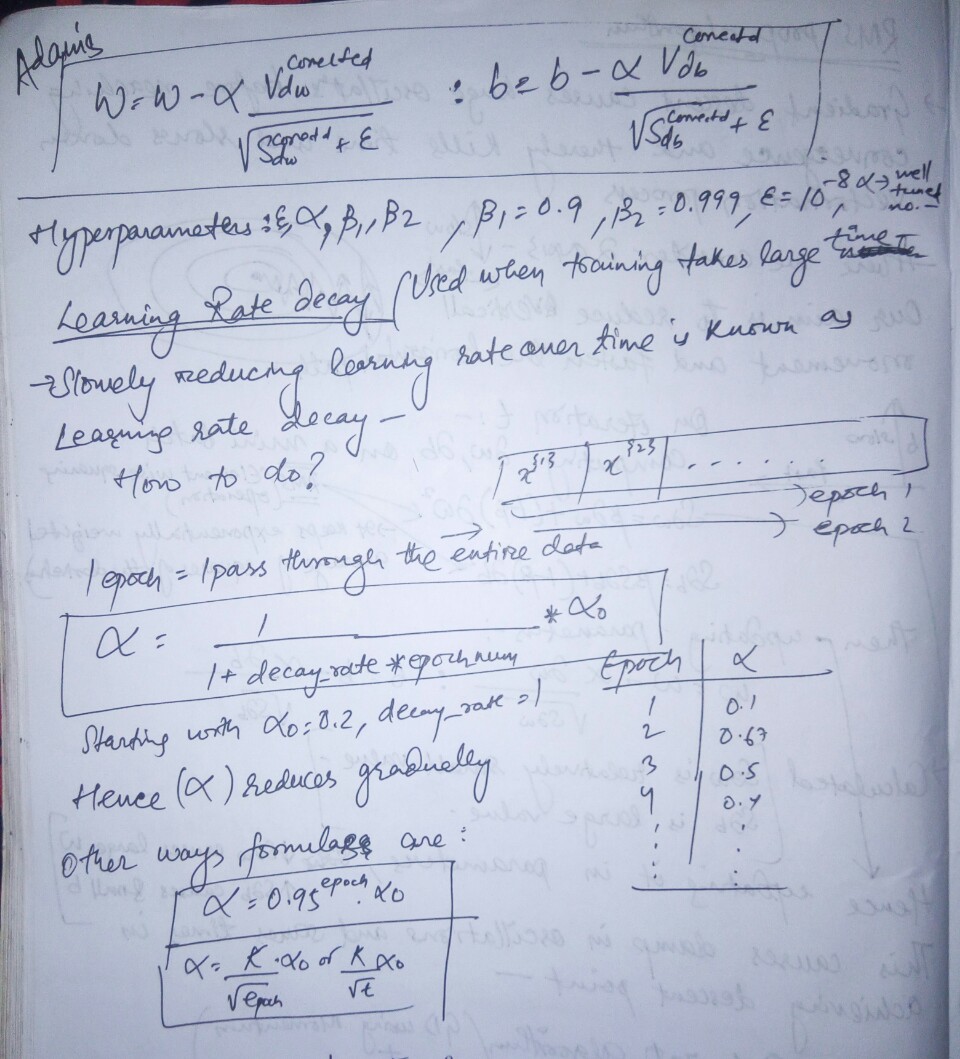 Adam's
W = W - α Vdw^corrected / √(Sdw^corrected + ε) : b = b - α Vdb^corrected / √(Sdb^corrected + ε)
Hyperparameters : ε, α, β1, β2, β1 = 0.9, β2 = 0.999, ε = 10^-8, α → well tuned no.-
Learning Rate decay (Used when training takes large time-
→ Slowely reducing learning rate over time is known as
Learning rate decay -
How to do?
x^{1} x^{2} . . . . . . .
epoch 1
epoch 2
1 epoch = 1 pass through the entire data
α = 1 / (1 + decay_rate * epoch num) * α0
Starting with α0 = 0.2, decay_rate = 1
Hence (α) reduces gradually
Epoch α
1 0.1
2 0.67
3 0.5
4 0.4
Other ways formulass are :
α = 0.95^epoch . α0
α = K/√epoch . α0 or K/√t α0